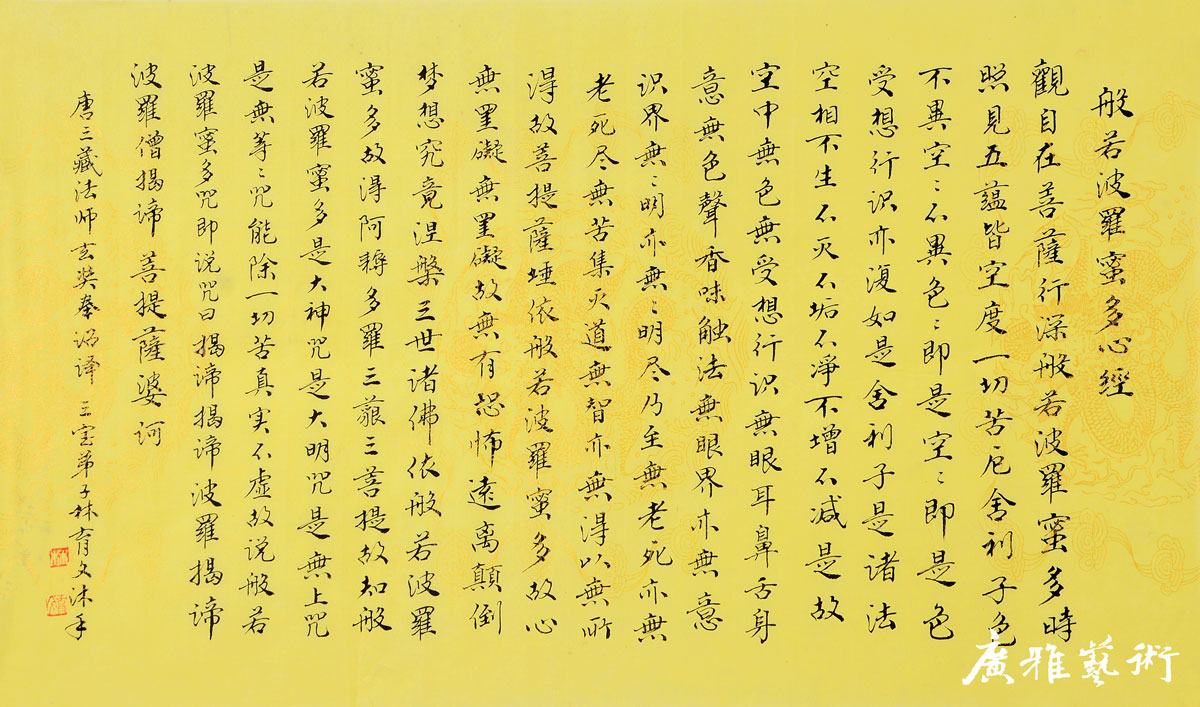 般若波羅蜜多心經
觀自在菩薩行深般若波羅蜜多時
照見五蘊皆空度一切苦厄舍利子色
不異空〻不異色〻即是空〻即是色
受想行识亦復如是舍利子是诸法
空相不生不灭不垢不净不增不减是故
空中無色無受想行识無眼耳鼻舌身
意無色聲香味触法無眼界亦無意
识界無〻明亦無〻明尽乃至無老死亦無
老死尽無苦集灭道無智亦無得以無所
得故菩提薩埵依般若波羅蜜多故心
無罣礙無罣礙故無有恐怖遠离顛倒
梦想究竟涅槃三世诸佛依般若波羅
蜜多故得阿耨多羅三藐三菩提故知般
若波羅蜜多是大神咒是大明咒是無上咒
是無等〻咒能除一切苦真实不虚故说般若
波羅蜜多咒即说咒曰揭谛揭谛波羅揭谛
波羅僧揭谛 菩提薩婆诃
唐三藏法师玄奘奉诏译 三宝弟子林育文沐手
廣雅藝術